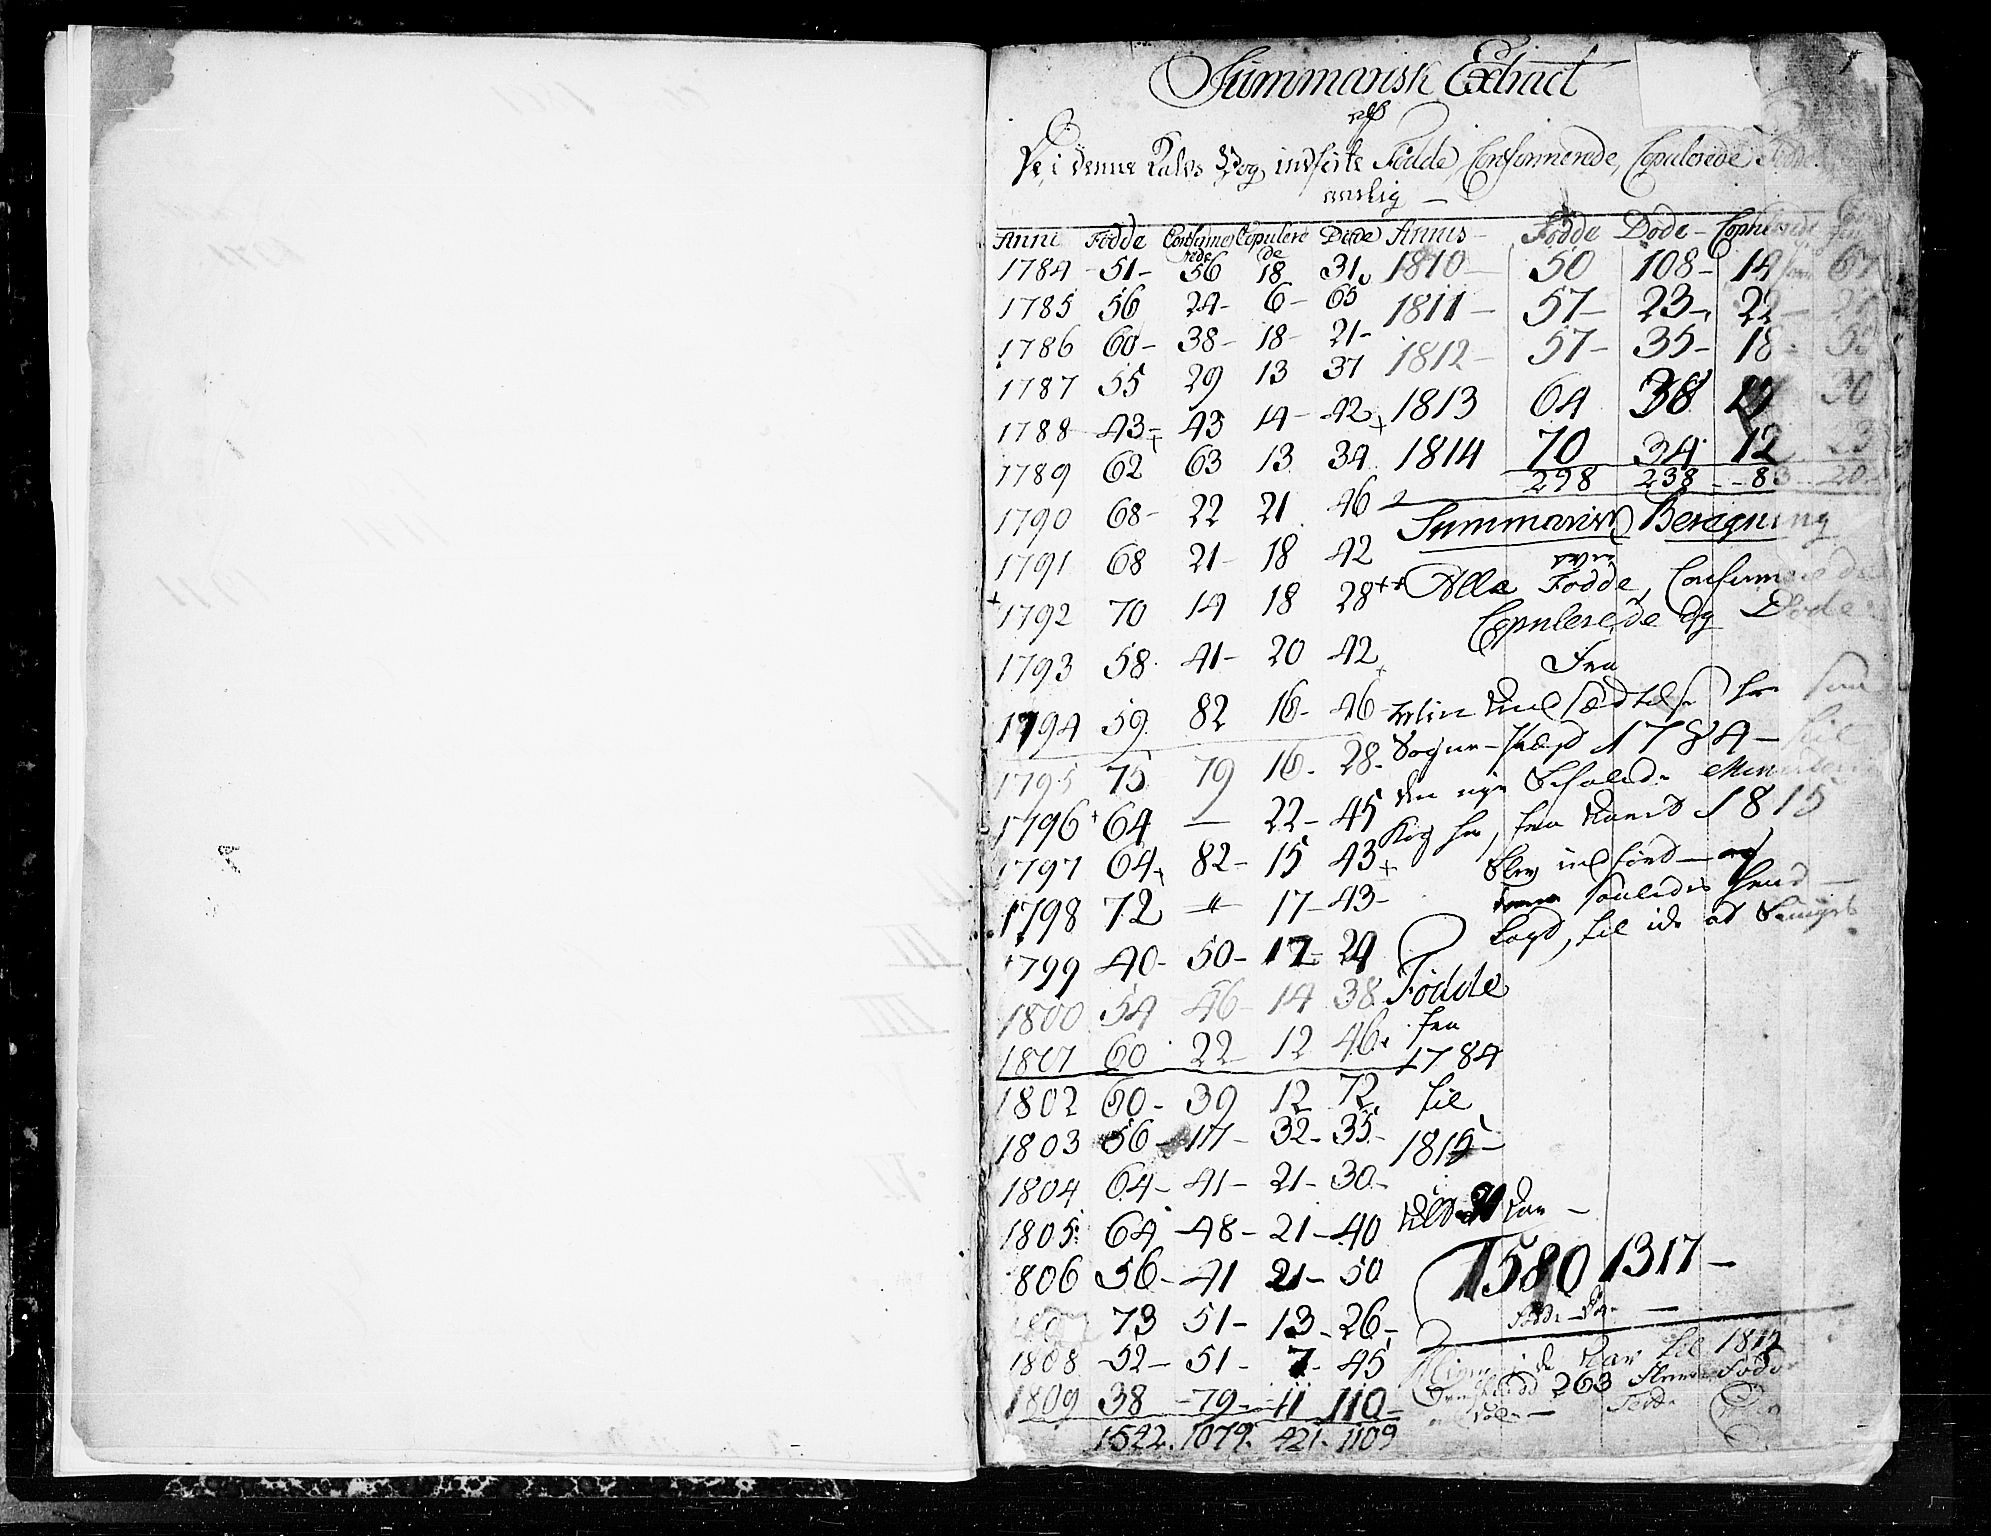 Summarisk Extract
aff
De i denne Kalds Bog indførte Fødde, Confirmerede, Copulerede
aarlig —
Anni Fødde Confirmerede Copulerede Døde
1784 - 51 - 56 18 31
1785 56 24 - 6 - 65
1786 60 - 38 - 18 - 21 -
1787 55 29 13 37
1788 43 - 43 14 - 42
1789 62 63 13 34
1790 68 - 22 21 46
1791 68 21 - 18 42
1792 70 14 18 28
1793 58 41 - 20 42
1794 59 82 16 - 46 -
1795 75 79 16 - 28 -
1796 64 — 22 - 45
1797 64 82 - 15 43
1798 72 — 17 - 43 -
1799 40 - 50 - 17 - 24
1800 54 46 - 14 38
1801 60 22 12 46
1802 60 - 39 12 72
1803 56 - 17 - 32 - 35 -
1804 64 - 41 - 21 - 30 -
1805 64 - 48 - 21 - 40
1806 56 - 41 21 - 50
73 51 - 13 - 26 -
1808 52 - 51 - 7 - 45
1809 38 - 79 - 11 110 -
1542. 1079. 421. 1109
Annis - Fødde Døde - Copulerede
1810 - 50 108 - 14 67
1811 - 57 - 23 - 22 -
1812 - 57 - 35 - 18 -
1813 64 38 30
1814 70 34 12 23
298 238 - - 83 - 20
Summarisk Beregning
over
Alle Fødde, Confirmerede
Copulerede og Døde
Fra
Min Ansædtelse her som
Sogne-Præst 1784 - til
den nye befalede Ministerial
Bog her, fra Aaret 1815
blev indført —
saaledes
lagt, til
Fødde
fra
1784
til
1815 -
Aar -
1580 1317 -
Aar til 1814
263 Flere Fødde